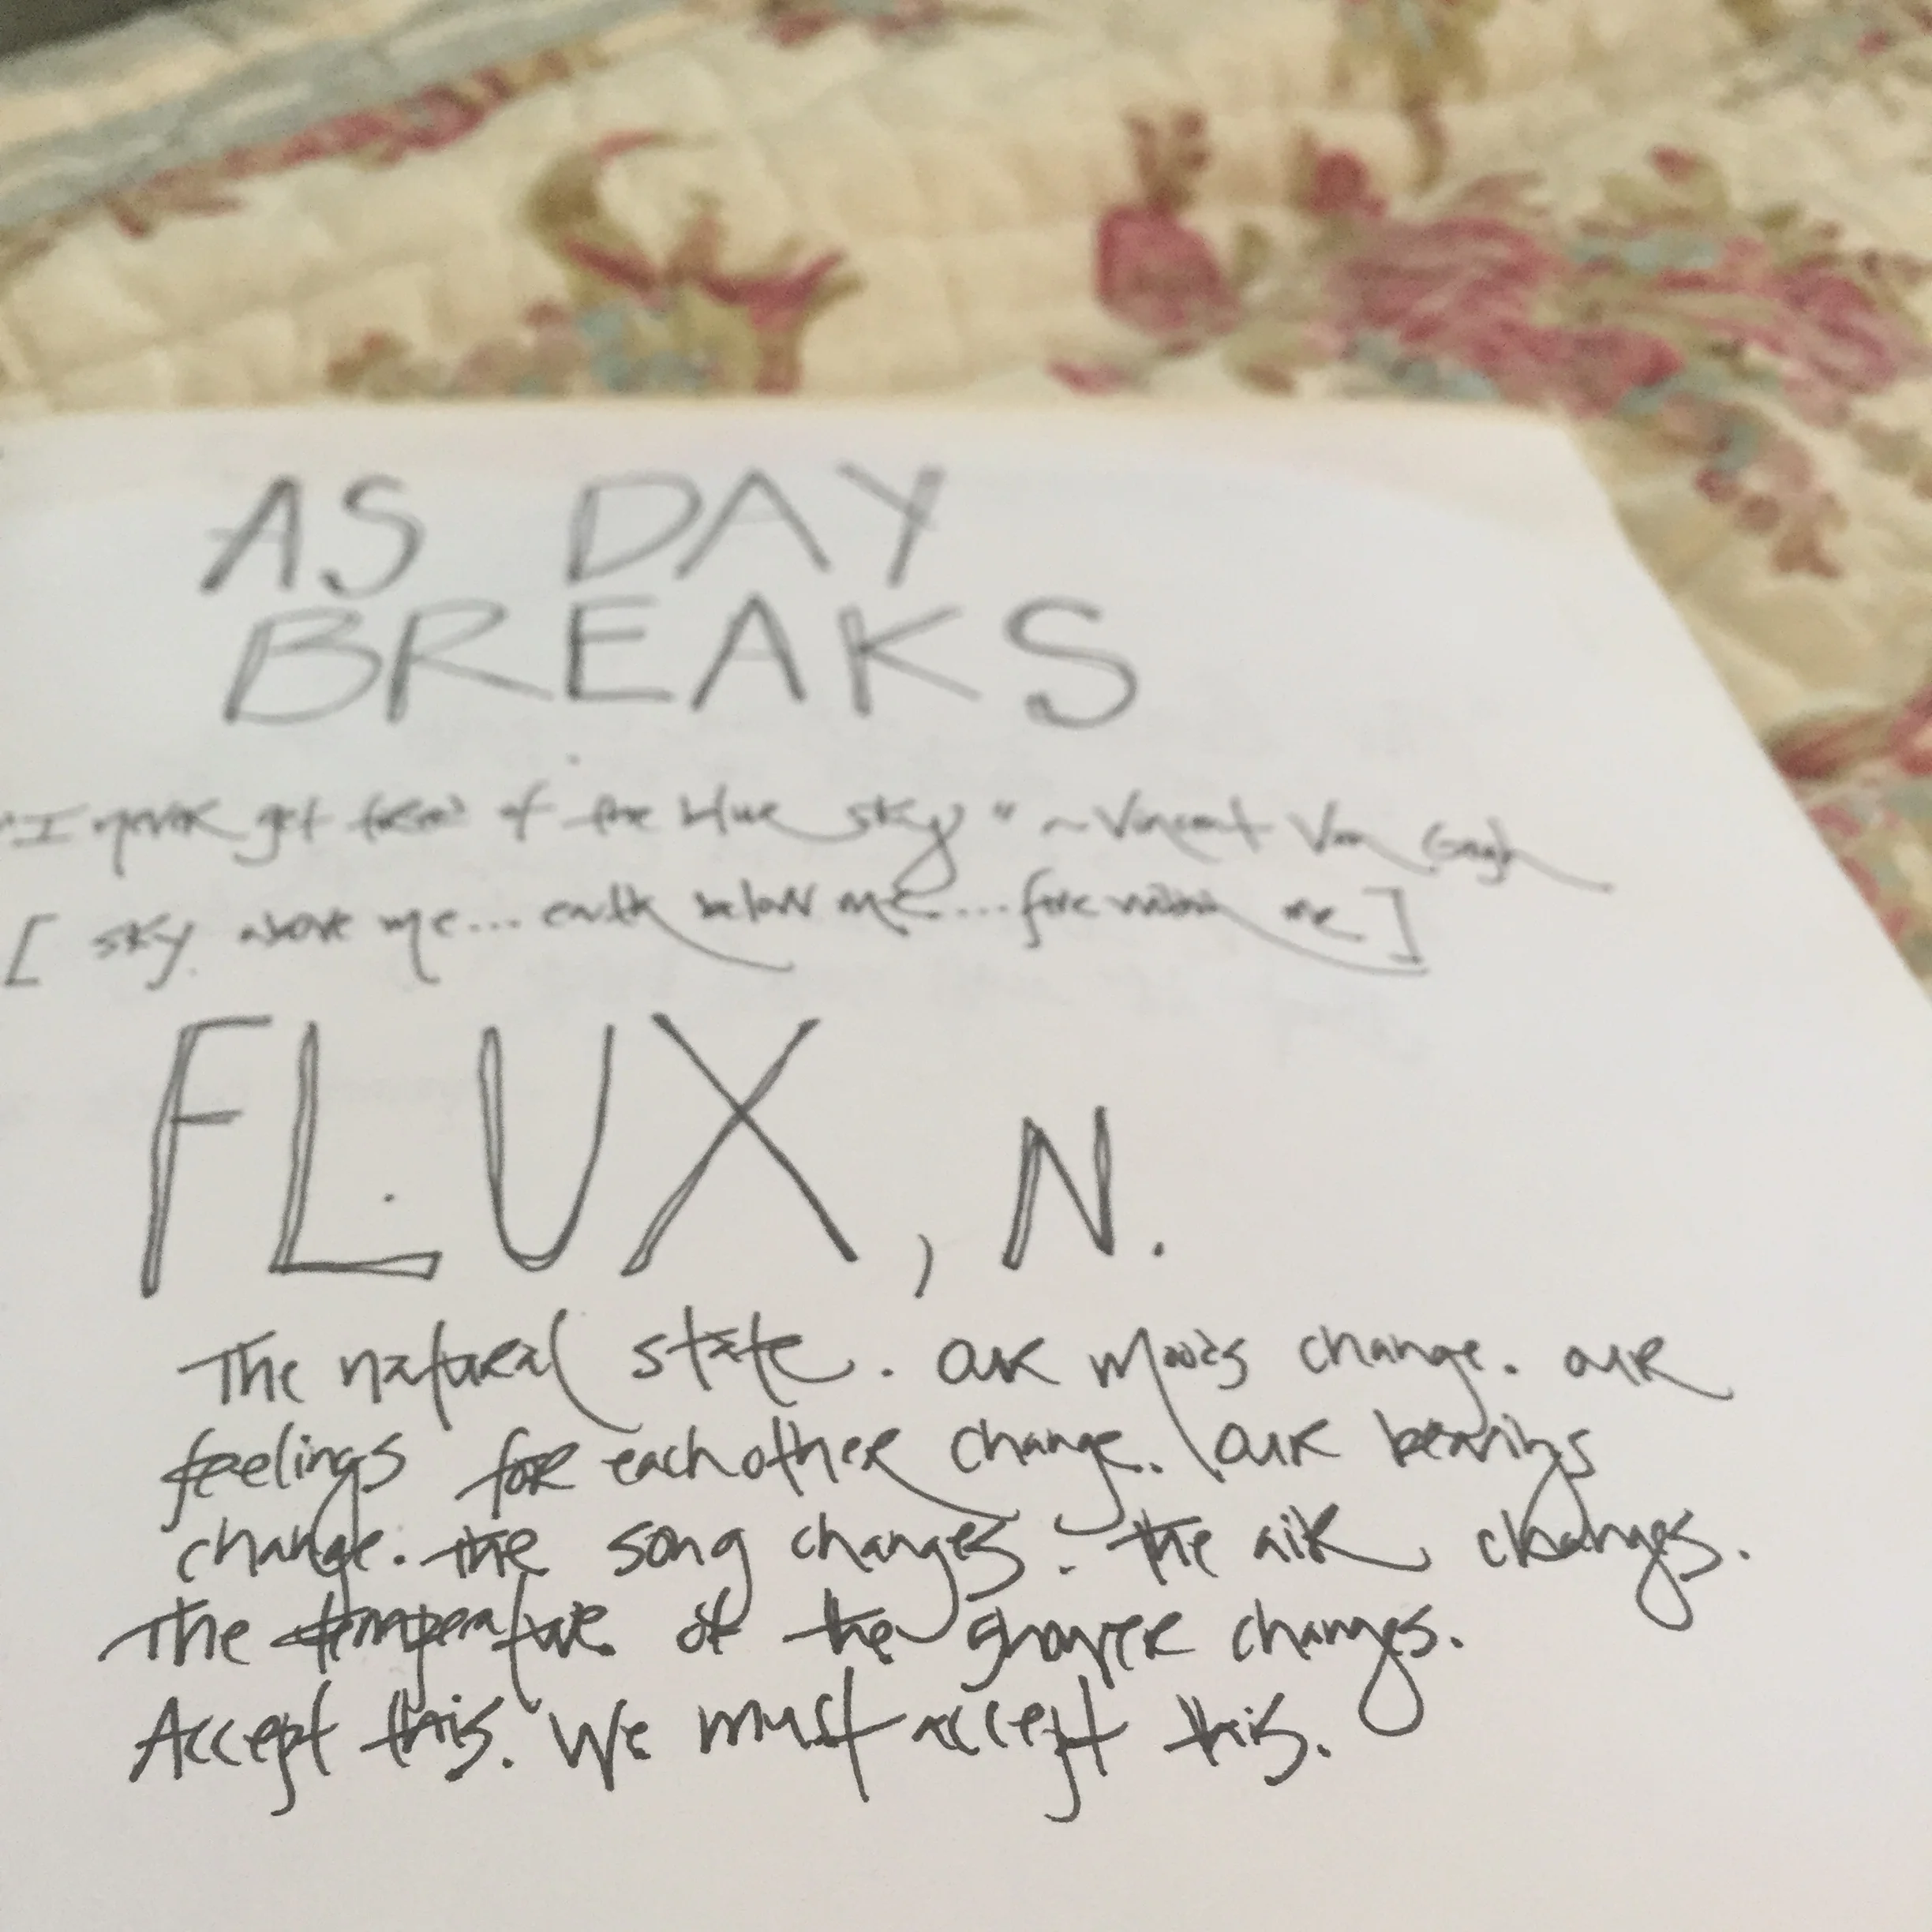 AS DAY
BREAKS
"I never get tired of the blue sky" ~Vincent Van Gogh
[ sky above me... earth below me.... fire within me ]
FLUX, N.
The natural state. our moods change. our
feelings for each other change. our bearings
change. the song changes. the air changes.
The temperature of the shower changes.
Accept this. We must accept this.